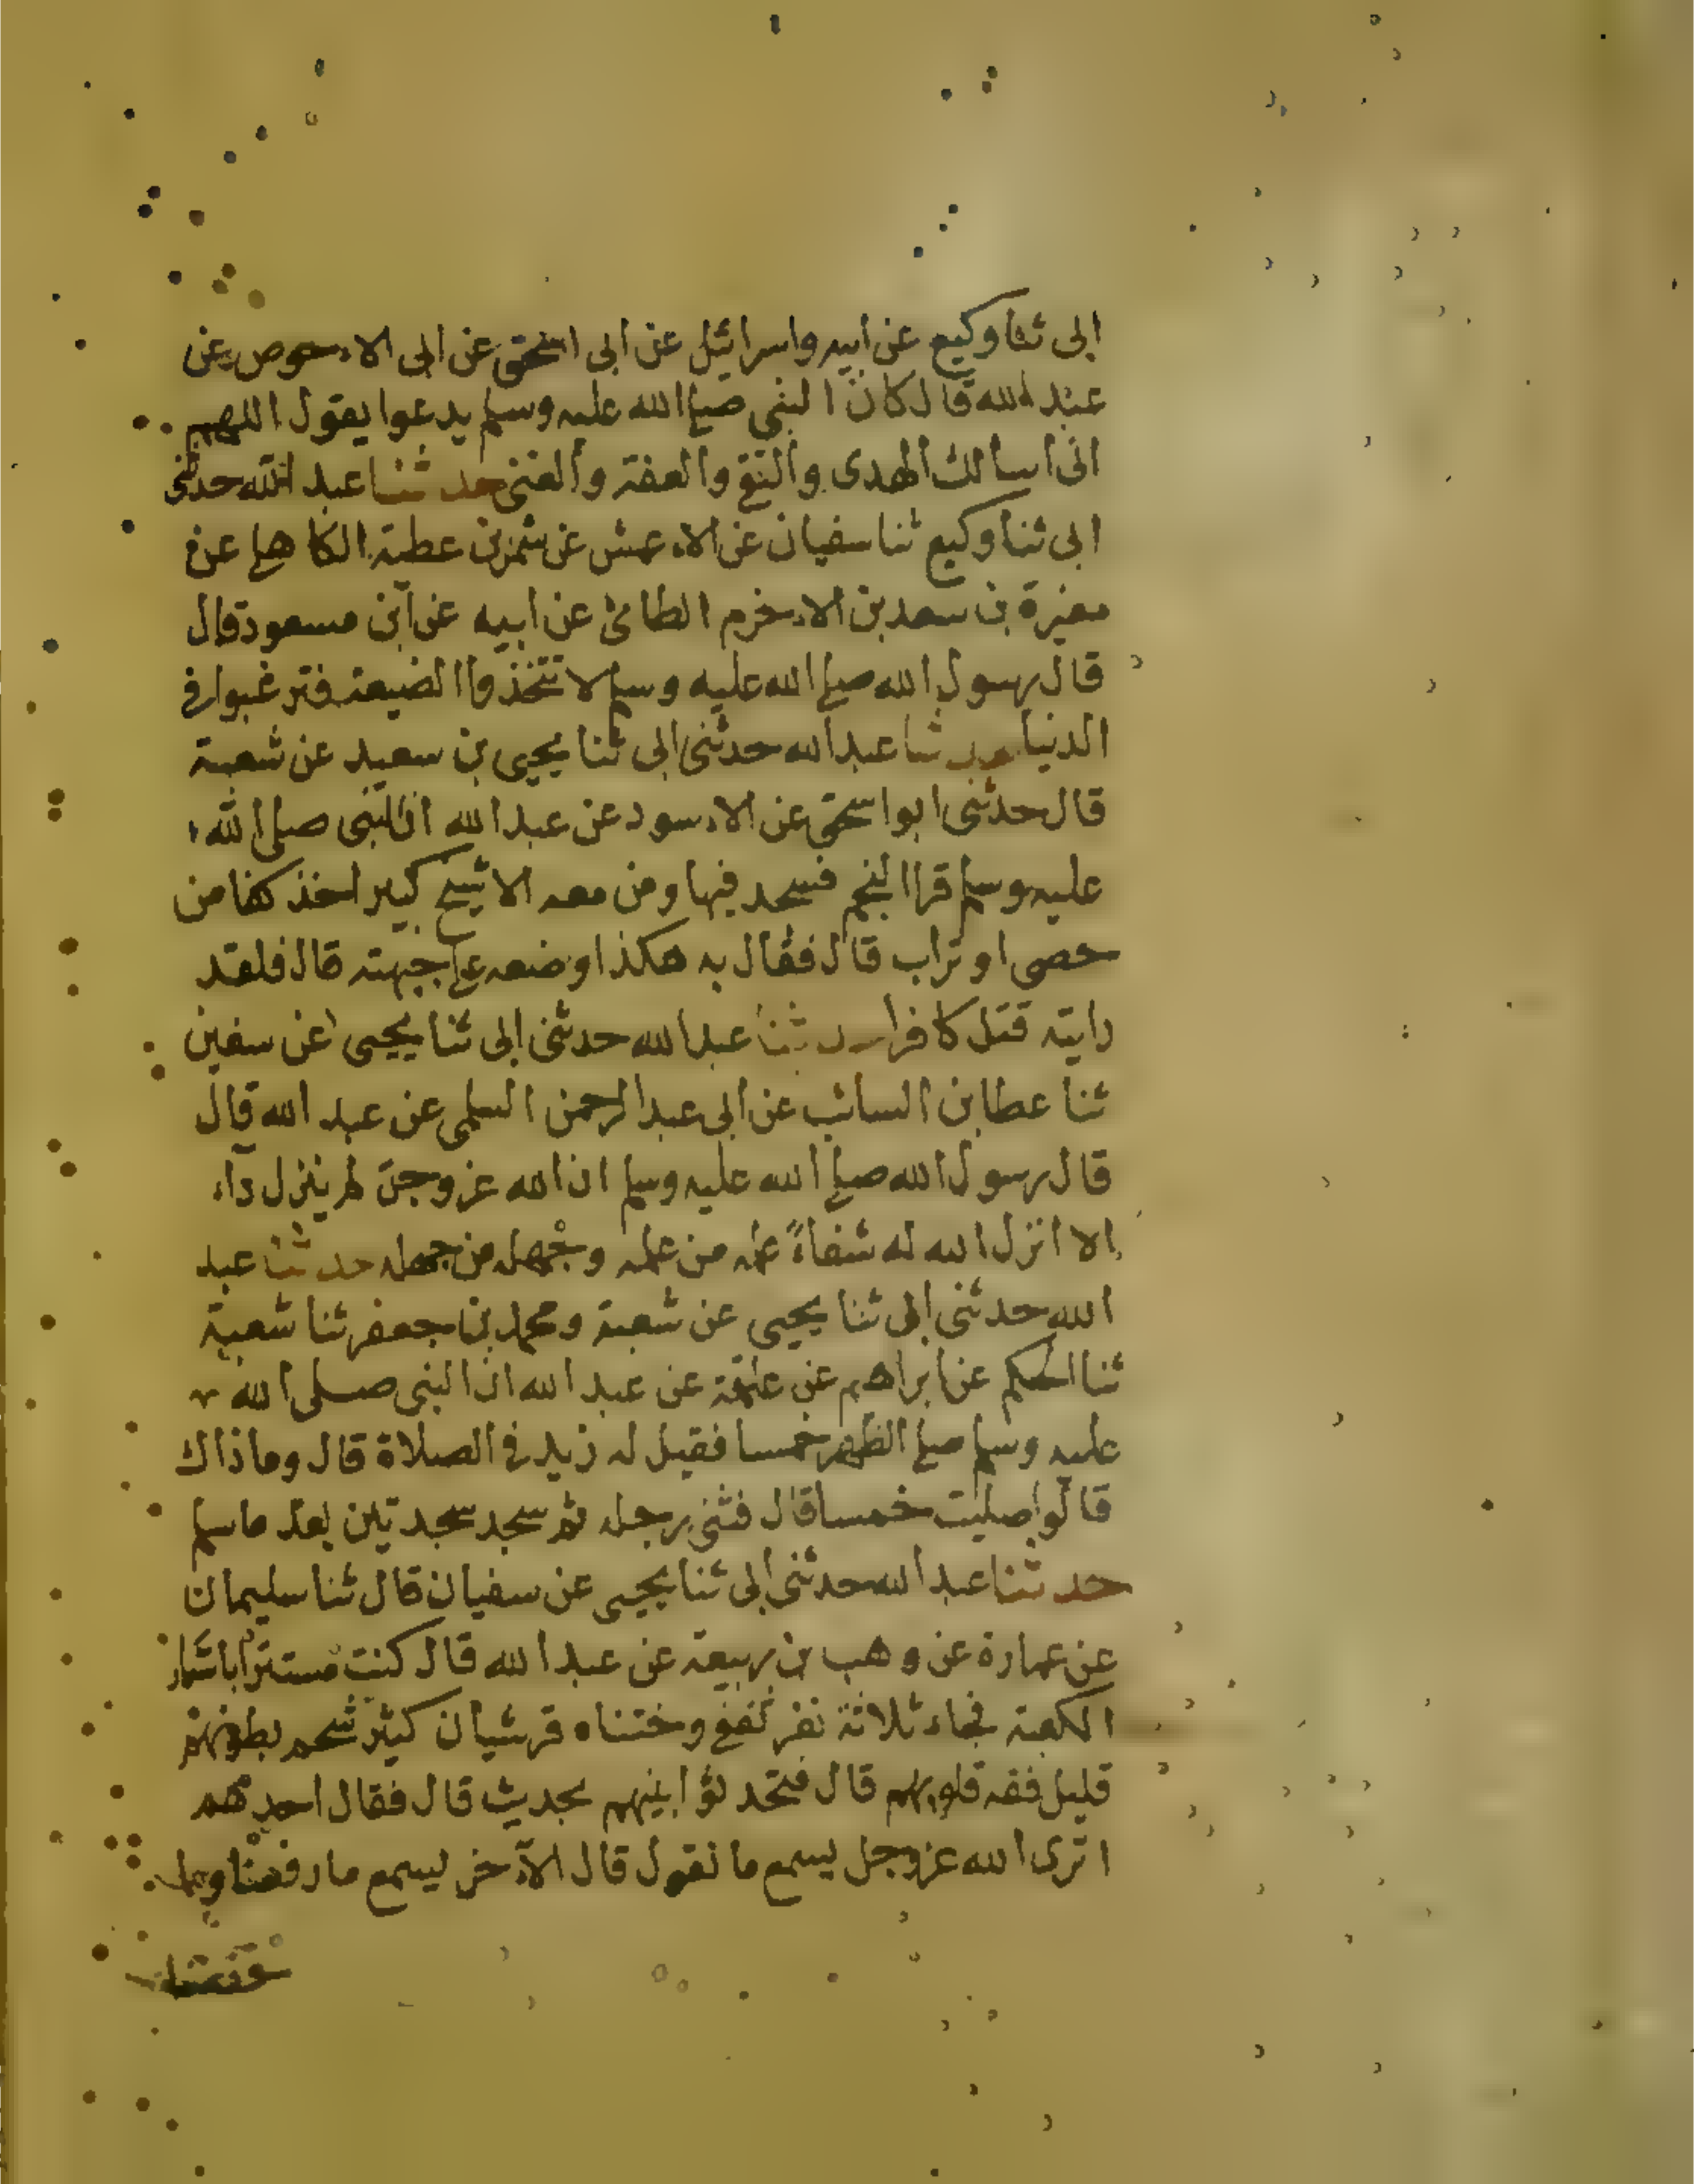 ابى ثنا وكيع عن ابيه واسرائيل عن ابى اسحق عن ابى الاحوص عن
عبد الله قال كان النبى صلى الله عليه وسلم يدعوا يقول اللهم
انى اسالك الهدى والتقى والعفة والغنى حدثنا عبد الله حدثنى
ابى ثنا وكيع ثنا سفيان عن الاعمش عن شمر بن عطية الكاهلى عن
مغيرة بن سعد بن الاخرم الطائى عن ابيه عن ابن مسعود قال
قال رسول الله صلى الله عليه وسلم لا تتخذوا الضيعة فترغبوا فى
الدنيا حدثنا عبد الله حدثنى ابى ثنا يحيى بن سعيد عن شعبة
قال حدثنى ابو اسحق عن الاسود عن عبد الله ان النبى صلى الله
عليه وسلم قرا النجم فسجد فيها ومن معه الا شيخ كبير اخذ كفا من
حصى او تراب قال فقال به هكذا وضعه على جبهته قال فلقد
رايته قتل كافرا حدثنا عبد الله حدثنى ابى ثنا يحيى عن سفين
ثنا عطا بن السائب عن ابى عبد الرحمن السلمى عن عبد الله قال
قال رسول الله صلى الله عليه وسلم ان الله عز وجل لم ينزل دآء
الا انزل الله له شفاءً علمه من علمه وجهله من جهله حدثنا عبد
الله حدثنى ابى ثنا يحيى عن شعبة ومحمد بن جعفر ثنا شعبة
ثنا الحكم عن ابراهيم عن علقمة عن عبد الله ان النبى صلى الله
عليه وسلم صلى الظهر خمسا فقيل له زيد فى الصلاة قال وما ذاك
قالوا صليت خمسا قال فثنى رجله ثم سجد سجدتين بعد ما سلم
حدثنا عبد الله حدثنى ابى ثنا يحيى عن سفيان قال ثنا سليمان
عن عمارة عن وهب بن ربيعة عن عبد الله قال كنت مستترا باستار
الكعبة فجاء ثلاثة نفر ثقفى وختناه قرشيان كثير شحم بطونهم
قليل فقه قلوبهم قال فتحدثوا بينهم بحديث قال فقال احدهم
اترى الله عز وجل يسمع ما نقول قال الآخر يسمع ما رفعنا وما